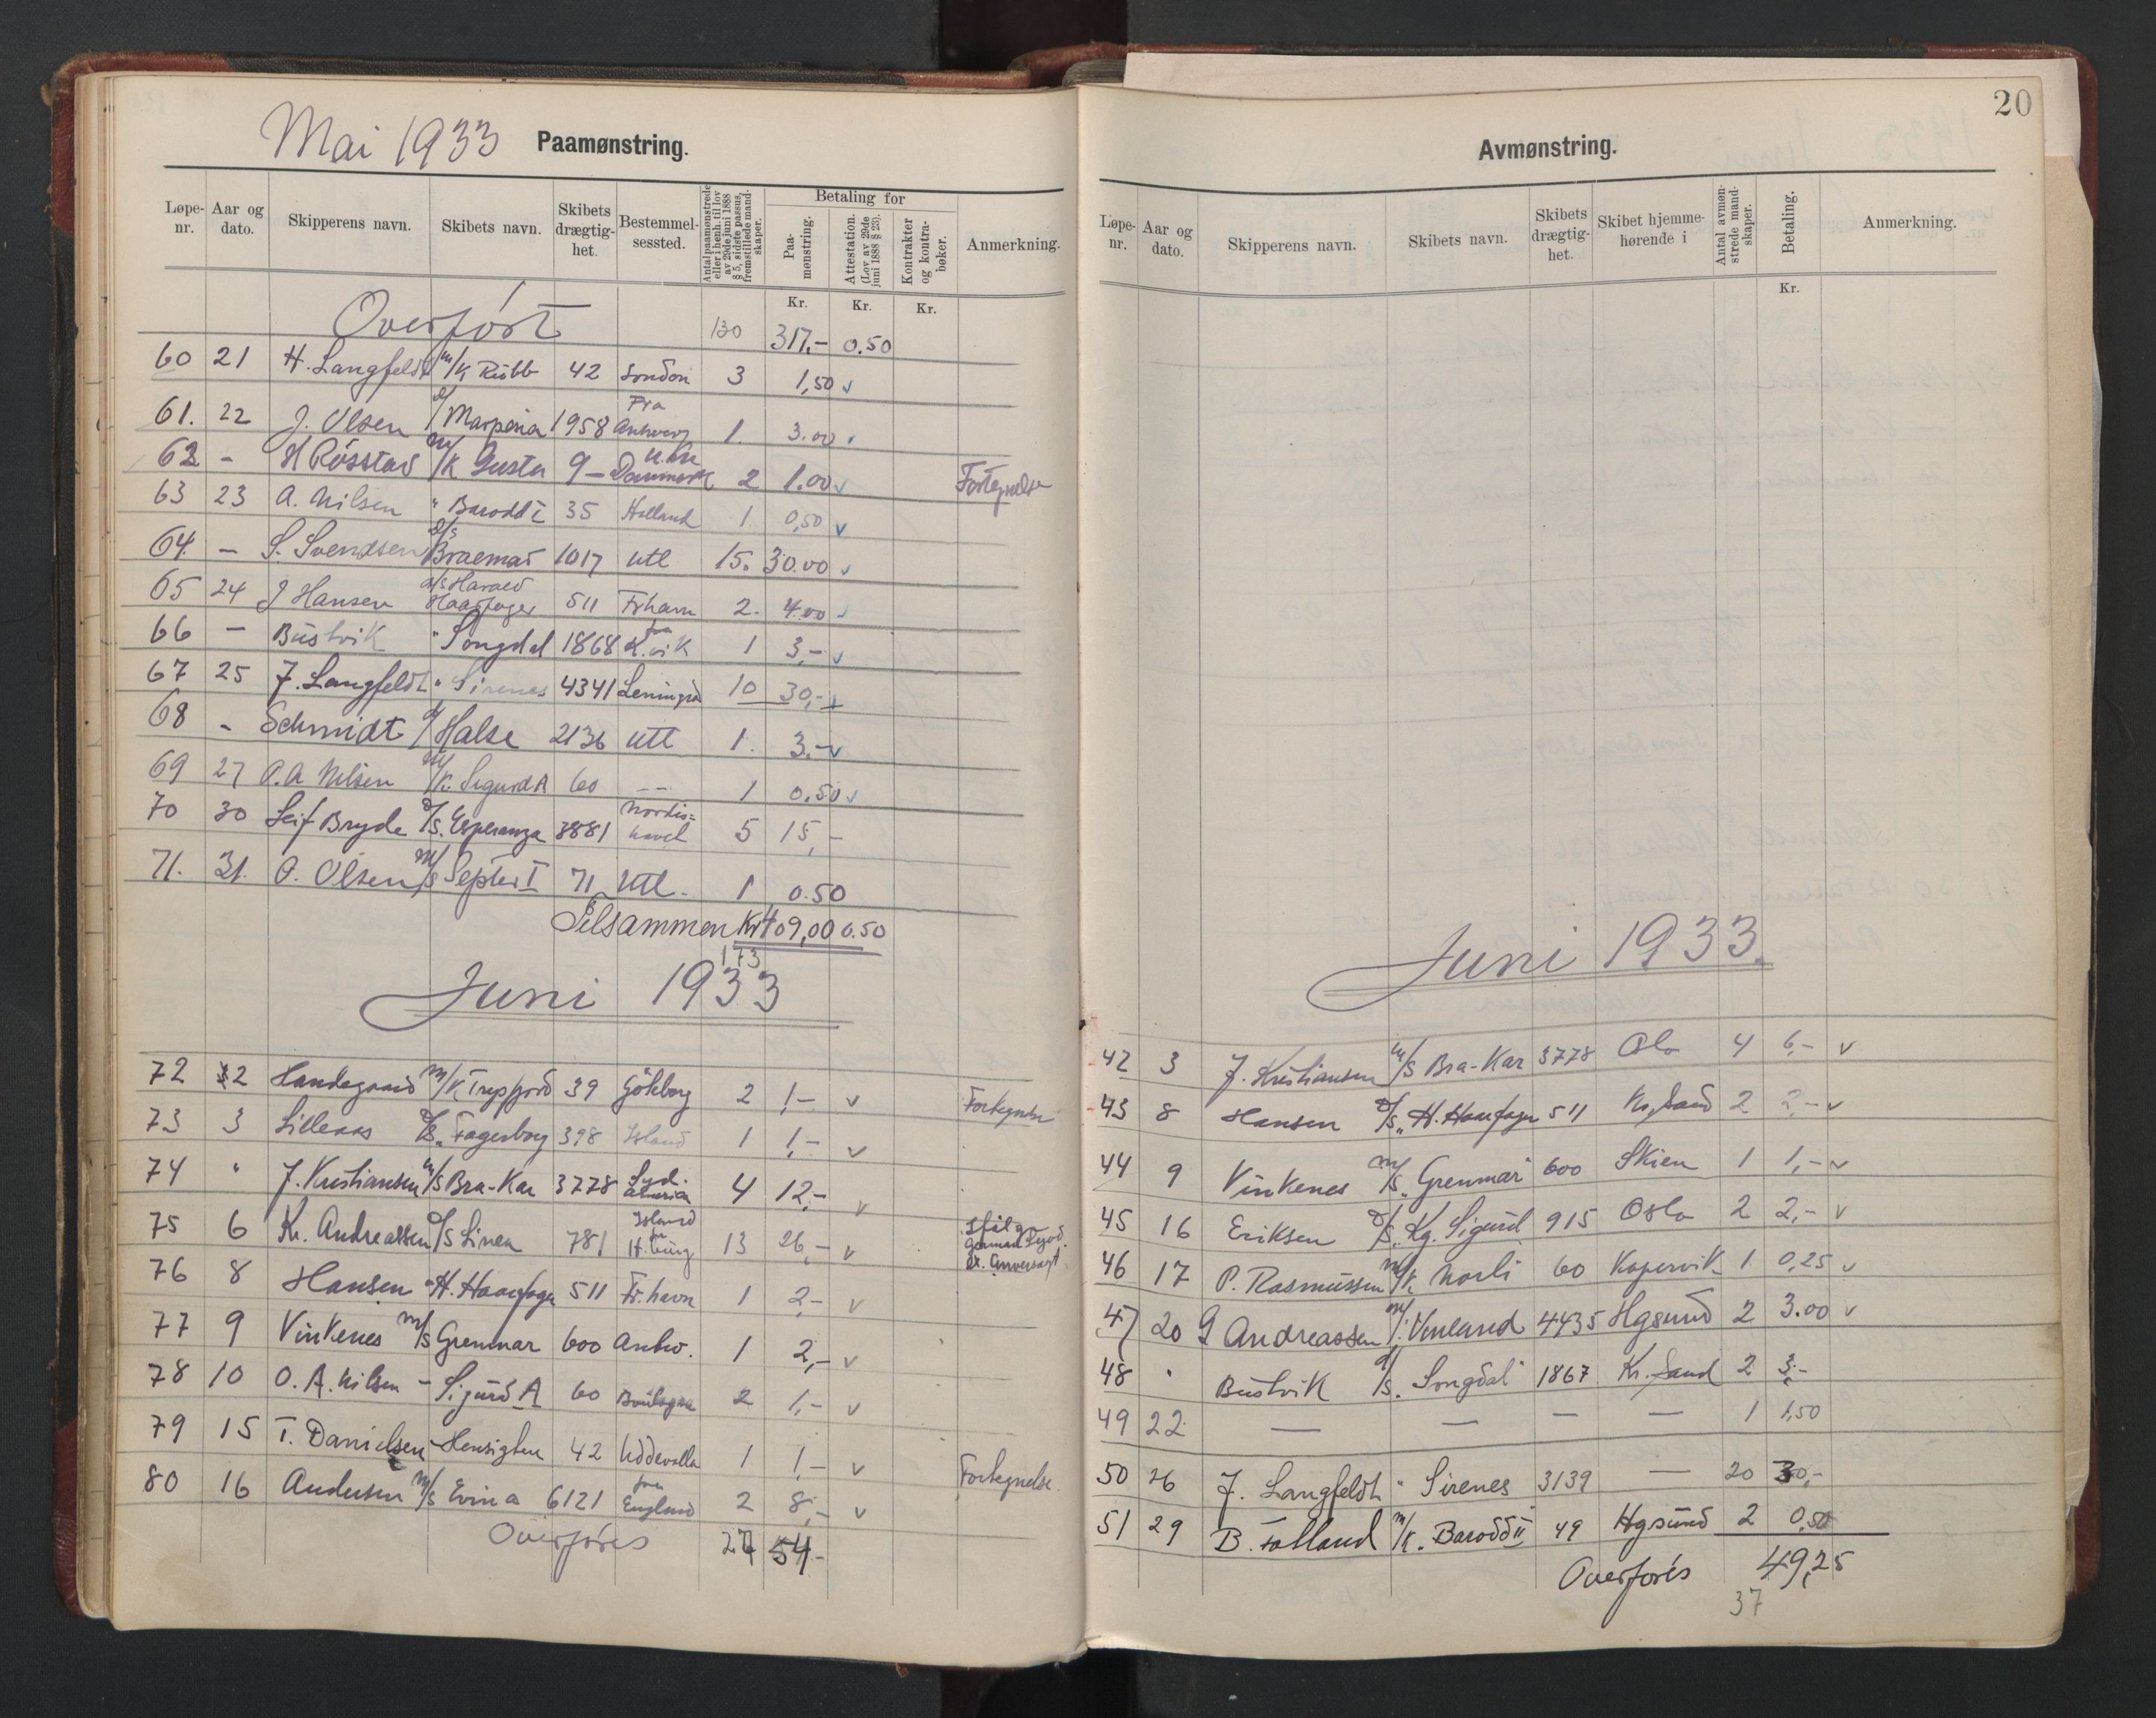 Mai 1933 Paamønstring.
Løpe-nr. Aar og dato. Skipperens navn. Skibets navn. Skibets drægtig-het. Bestemmel-sessted. Antal paamønstrede eller i henh. til lov av 29de juni 1888 § 5, sidste passus, fremstillede mand-skaper. Betaling for Paa-mønstring. Attestation. (Lov av 29de juni 1888 § 23). Kontrakter og kontra-bøker. Anmerkning.
Kr. Kr. Kr.
Overført 130 317,- 0.50
60 21 H. Langfeldt m/k Rubb 42 London 3 1,50 v
61. 22 J. Olsen d/ Marpesia 1958 Fra Antwerp 1. 3.00 v
62 - H Røsstad m/k Gusta 9 - Danmark 2 1.00 v Fortegnelse
63 23 A. Nilsen " Barodd I 35 Holland 1 0,50 v
64. - S. Svendsen d/s Braemar 1017 utl 15. 30.00 v
65 24 J Hansen d/s Harald Haarfager 511 Frhavn 2. 4.00 v
66 - Bustvik " Songdal 1868 fra L.vik 1 3,- v
67 25 J. Langfeldt " Sirenes 4341 Leningrad 10 30,- v
68 - Schmidt d/ Halse 2136 utl 1. 3.- v
69 27 O. A Nilsen m/k. Sigurd A 60 -- 1 0.50 v
70 30 Leif Bryde d/s. Esperanza 3881 Nordis= havet 5 15,-
71. 31. O. Olsen m/s Septer I 71 Utl. 1 0.50
Tilsammen Kr 409,00 0.50
173
Juni 1933
72 2 Handegaard m/k Trysfjord 39 Göteborg 2 1,- v Fortegnelse
73 3 Lilleaas d/s. Fagerborg 398 Island 1 1,- v
74 " J. Kristiansen m/s Bra-Kar 3778 Syd. Amerika 4 12,- v
75 6 Kr. Andreassen d/s Linea 781 Island fra H.burg 13 26,- v
76 8 Hansen " H. Haarfager 511 Fr.havn 1 2,- v
77 9 Vinkenes m/s Grenmar 600 Antw. 1 2,- v
78 10 O. A. Nilsen - Sigurd A 60 Boulogne 2 1,- v
79 15 T. Danielsen - Hensigten 42 Uddevalla 1 1,- v Fortegnelse.
80 16 Andersen m/s Evina 6121 fra England 2 8,- v
Overføres 27 54.-
20
Avmønstring.
Løpe-nr. Aar og dato. Skipperens navn. Skibets navn. Skibets drægtig-het. Skibet hjemme-hørende i Antal avmøn-strede mand-skaper. Betaling. Anmerkning.
Kr.
Juni 1933.
42 3 J. Kristiansen m/s Bra-Kar 3778 Oslo 4 6,- v
43 8 Hansen d/s. H. Haarfager 511 Kr.sand 2 2,- v
44 9 Vinkenes m/s. Grenmar 600 Skien 1 1,- v
45 16 Eriksen d/s. Kg. Sigurd 915 Oslo 2 2,- v
46 17 P. Rasmussen m/k. Norli 60 Kopervik 1 0,25 v
47 20 G Andreassen m/. Vinland 4435 Hgsund 2 3.00 v
48 " Bustvik d/s. Songdal 1867 Kr. sand 2 3,-
49 22 — — — — 1 1,50
50 26 J. Langfeldt " Sirenes 3139 — 20 30,-
51 29 B. Falland m/k. Barodd II 49 Hgsund 2 0,50
Overføres 49,25
37